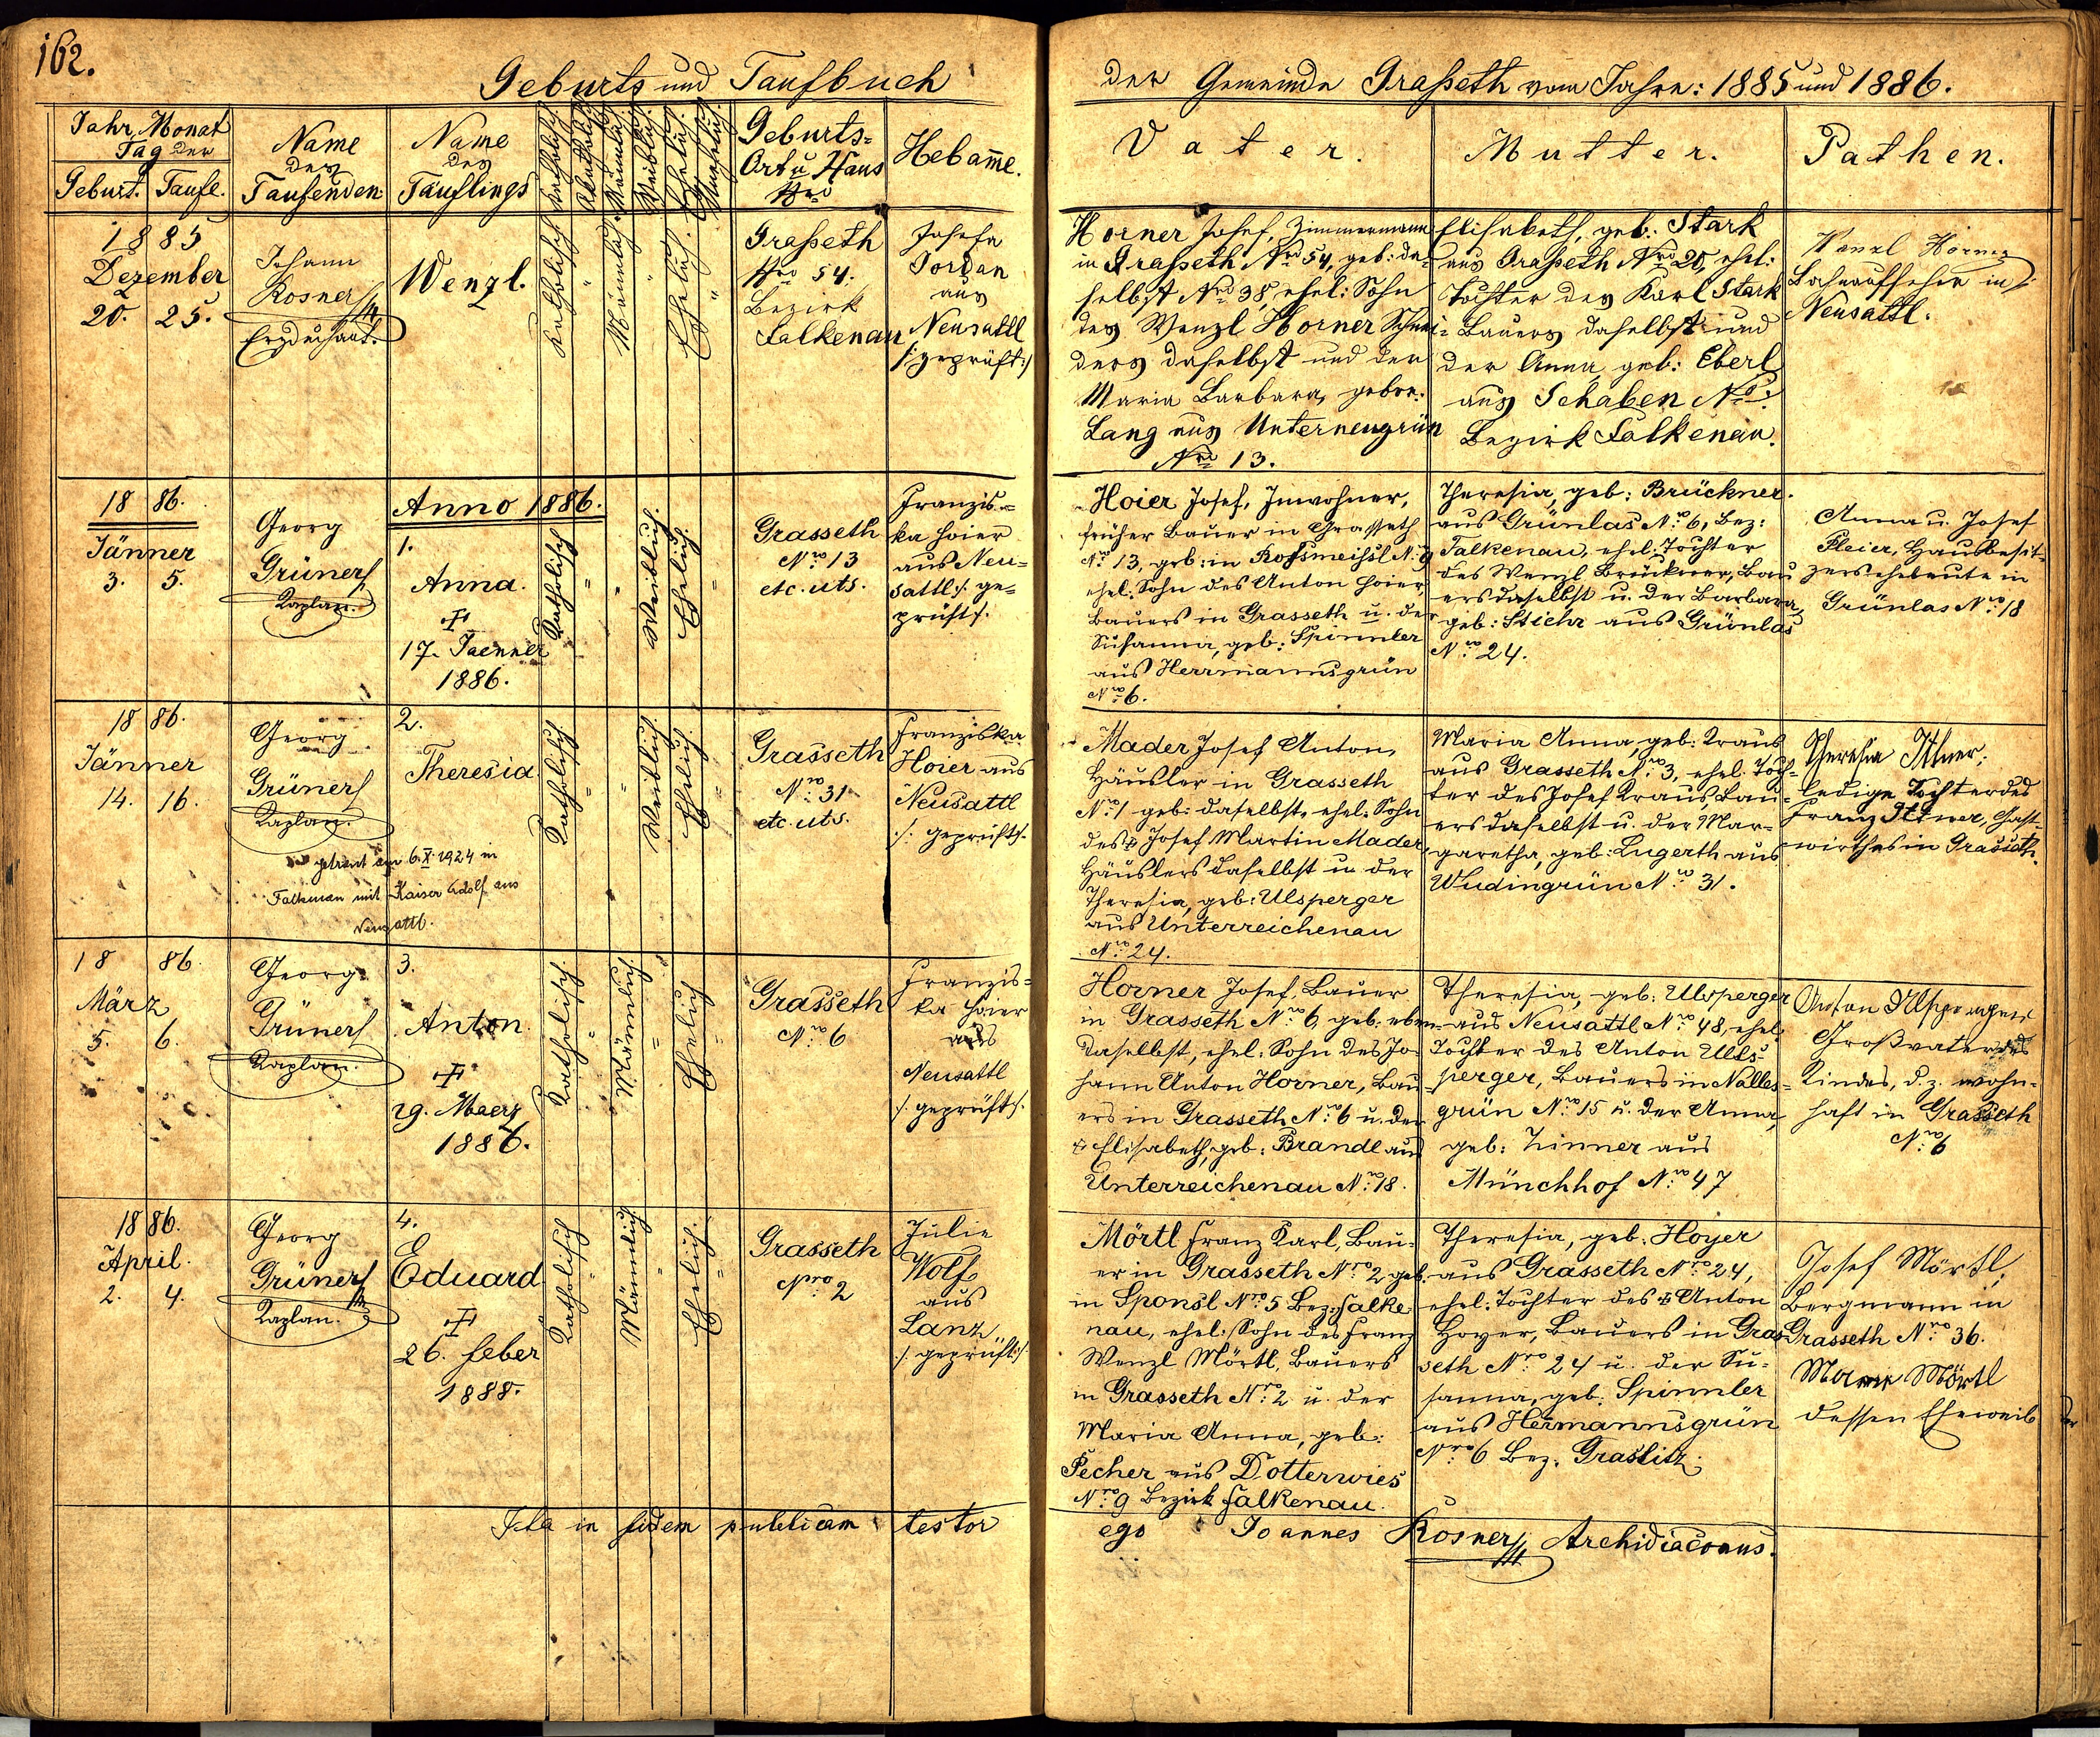 162.
Geburts und Taufbuch
Jahr, Monat
Tag der
Geburt. Taufe.
Name
des
Taufenden
Name
des
Täuflings
Katholisch
Akatholisch
Männlich
Weiblich
Ehelich
Unehelich
Geburts=
Ort u Haus
Nro
Hebame.
1885
Dezember
20. 25.
Johann
Rosner
Erzdechant.
Wenzl.
Katholisch
"
Männlich
"
Ehelich.
"
Graßeth
Nro 54.
Bezirk
Falkenau
Josefa
Jordan
aus
Neusattl
/:geprüft:/
1886.
Jänner
3. 5.
Georg
Grüner
Kaplan.
Anno 1886.
1.
Anna.
17. Jaenner
1886.
Katholisch
"
"
Weiblich.
Ehelich.
"
Grasseth
Nro 13
etc. uts.
Franzis=
ka Hoier
aus Neu=
sattl /: ge=
prüft /:
1886.
Jänner
14. 16.
Georg
Grüner
Kaplan.
getraut am 6. X. 1924 in
Falkenau mit Kaiser Adolf aus
Neusattl.
2.
Theresia
Katholisch
"
"
Weiblich.
Ehelich
"
Grasseth
Nro 31
etc. uts.
Franziska
Hoier aus
Neusattl
/: geprüft /:
1886.
März
5. 6.
Georg
Grüner
Kaplan.
3.
Anton.
29. Maerz
1886.
Katholisch
"
Männlich
"
Ehelich
"
Grasseth
Nro 6
Franzis=
ka Hoier
aus
Neusattl
/: geprüft /:
1886.
April.
2. 4.
Georg
Grüner
Kaplan.
4.
Eduard
26. Feber
1888.
Katholisch
"
Männlich
"
Ehelich.
"
Grasseth
Nro 2
Julie
Wolf
aus
Lanz
/: geprüft :/
Ita in fidem publicam testor
der Gemeinde Graßeth vom Jahre: 1885 und 1886.
Vater.
Mutter.
Pathen.
Horner Josef, Zimmermann
in Graßeth Nro 54, geb: da=
selbst Nro 38, ehel: Sohn
des Wenzl Horner Schnei=
ders daselbst und der
Maria Barbara, gebor:
Lang aus Unterneugrün
Nro 13.
Elisabeth, geb: Stark
aus Graßeth Nro 20, ehel:
Tochter des Karl Stark
Bauers daselbst und
der Anna geb: Eberl
aus Schaben No:
Bezirk Falkenau.
Wenzl Horner
Bahnaufseher in
Neusattl.
Hoier Josef, Inwohner,
früher Bauer in Grasseth
No 13, geb: in Roßmeißl No 9
ehel: Sohn des Anton Hoier,
Bauers in Grasseth u. der
Susanna, geb: Spinnler
aus Herrmannsgrün
Nro 6.
Theresia, geb: Brückner
aus Grünlas No 6, Bez:
Falkenau, ehel: Tochter
des Wenzl Brückner, Bau
ers daselbst u. der Barbara,
geb: Stichr aus Grünlas
No 24.
Anna u. Josef
Pleier, Hausbesit=
zerseheleute in
Grünlas No 18
Mader Josef Anton,
Häusler in Grasseth
No 1 geb: daselbst, ehel: Sohn
des Josef Martin Mader,
Häuslers daselbst u. der
Theresia, geb: Ulsperger
aus Unterreichenau
Nro 24.
Maria Anna, geb: Kraus
aus Grasseth No 3, ehel. Toch=
ter des Josef Kraus Bau=
ers daselbst u. der Mar=
garetha, geb: Lugerth aus
Wudingrün No 31.
Theresia Ittner,
ledige Tochter des
Franz Ittner, Gast=
wirthes in Grasseth.
Horner Josef, Bauer
in Grasseth No 6, geb: eben=
daselbst, ehel: Sohn des Jo=
hann Anton Horner, Bau=
ers in Grasseth No 6 u. der
Elisabeth, geb: Brandl aus
Unterreichenau No 18.
Theresia, geb: Ulsperger
aus Neusattl No 48, ehel:
Tochter des Anton Uls=
perger, Bauers in Nalles=
grün No 15 u. der Anna,
geb: Zinner aus
Münchhof No 47
Anton Ulsperger
Großvater des
Kindes, d. z. wohn=
haft in Grasseth
No 6
Mörtl Franz Karl, Bau=
er in Grasseth Nro 2 geb.
in Sponsl Nro 5 Bez: Falke
nau, ehel. Sohn des Franz
Wenzl Mörtl, Bauers
in Grasseth Nro 2 u. der
Maria Anna, geb:
Pecher aus Dotterwies
Nro 9 Bezirk Falkenau.
Theresia, geb. Hoyer
aus Grasseth Nro 24,
ehel: Tochter des Anton
Hoyer, Bauers in Gras
seth Nro 24 u. der Su=
sanna, geb: Spinnler
aus Hermannsgrün
Nro 6 Bez. Graslitz.
Josef Mörtl,
Bergmann in
Grasseth Nro 36.
Mörtl
dessen Eheweib
ego Joannes Rosner Archidiaconus.